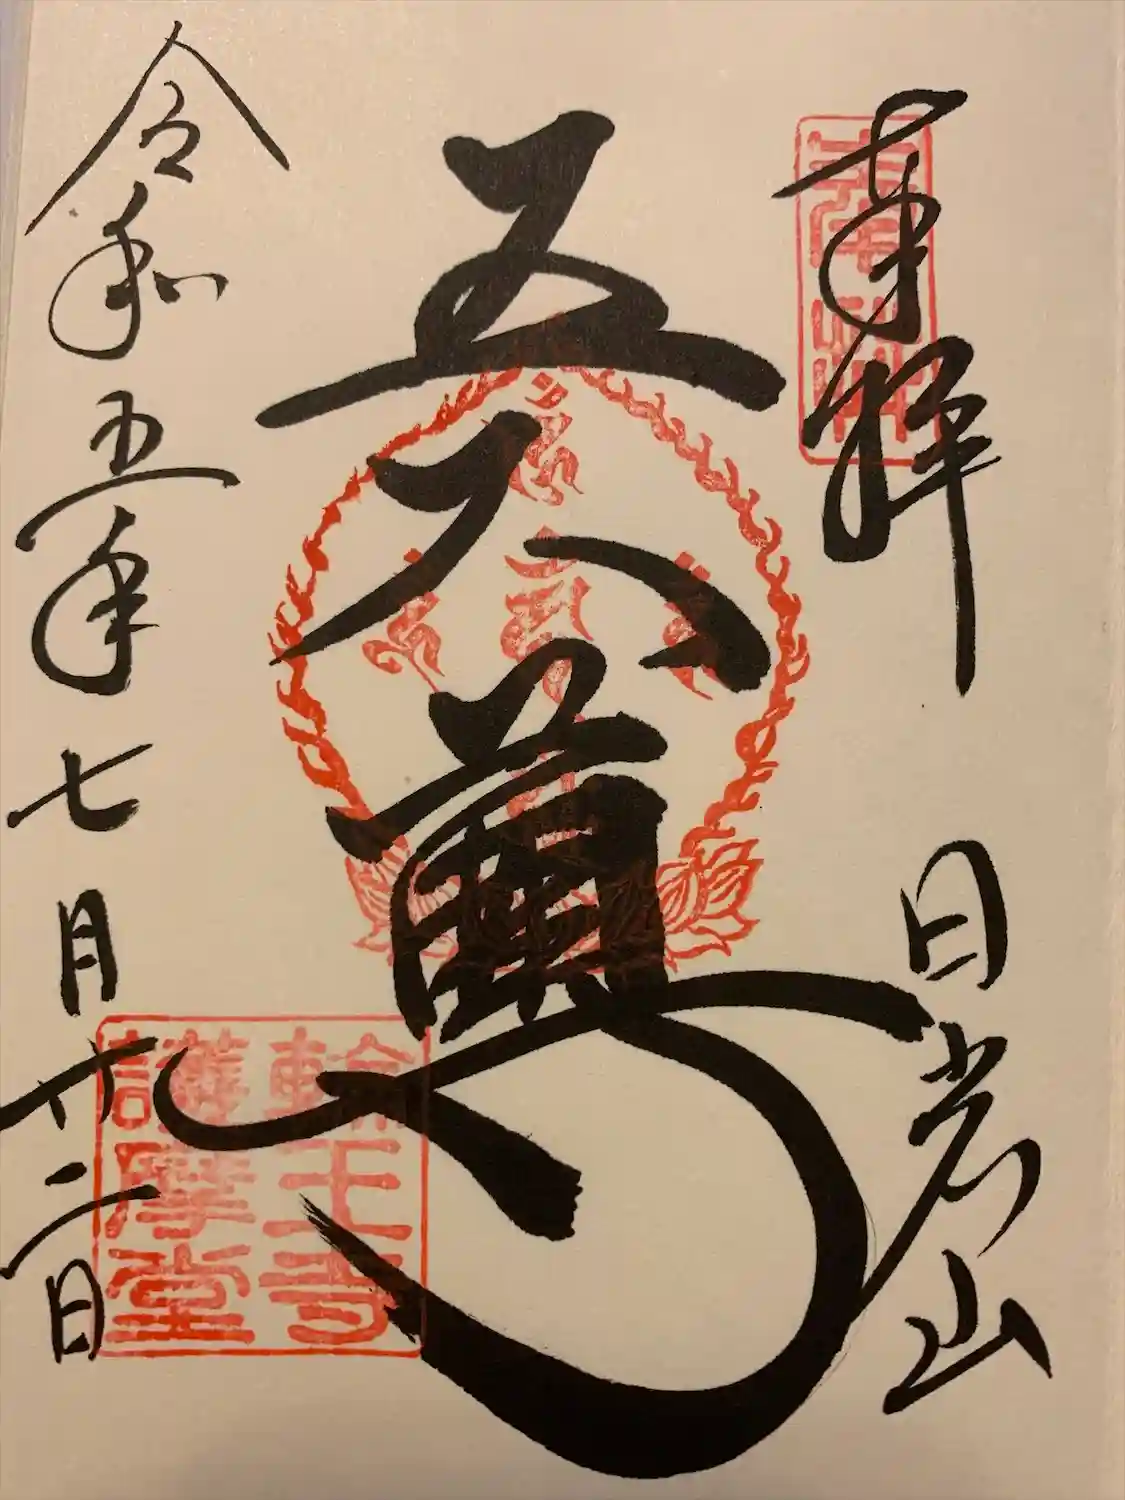 奉拝
日光山
五大尊
輪王寺
護摩堂
令和五年七月廿二日